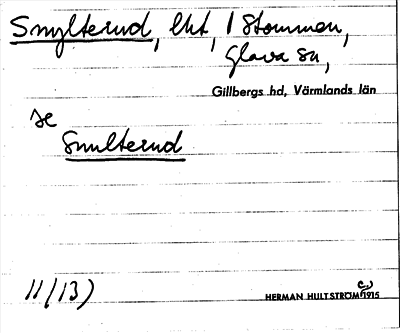 Smylterud, lht, 1 Stommen,
Glava sn,
Gillbergs hd, Värmlands län
se
Smulterud
11/13)
HERMAN HULTSTRÖM 1915